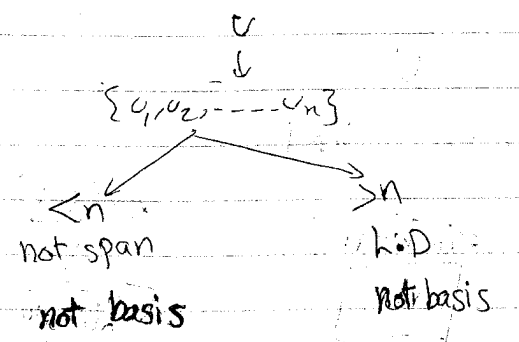 V
{v₁, v₂, ----- vₙ}
<n
>n
not span
L.D
not basis
not basis